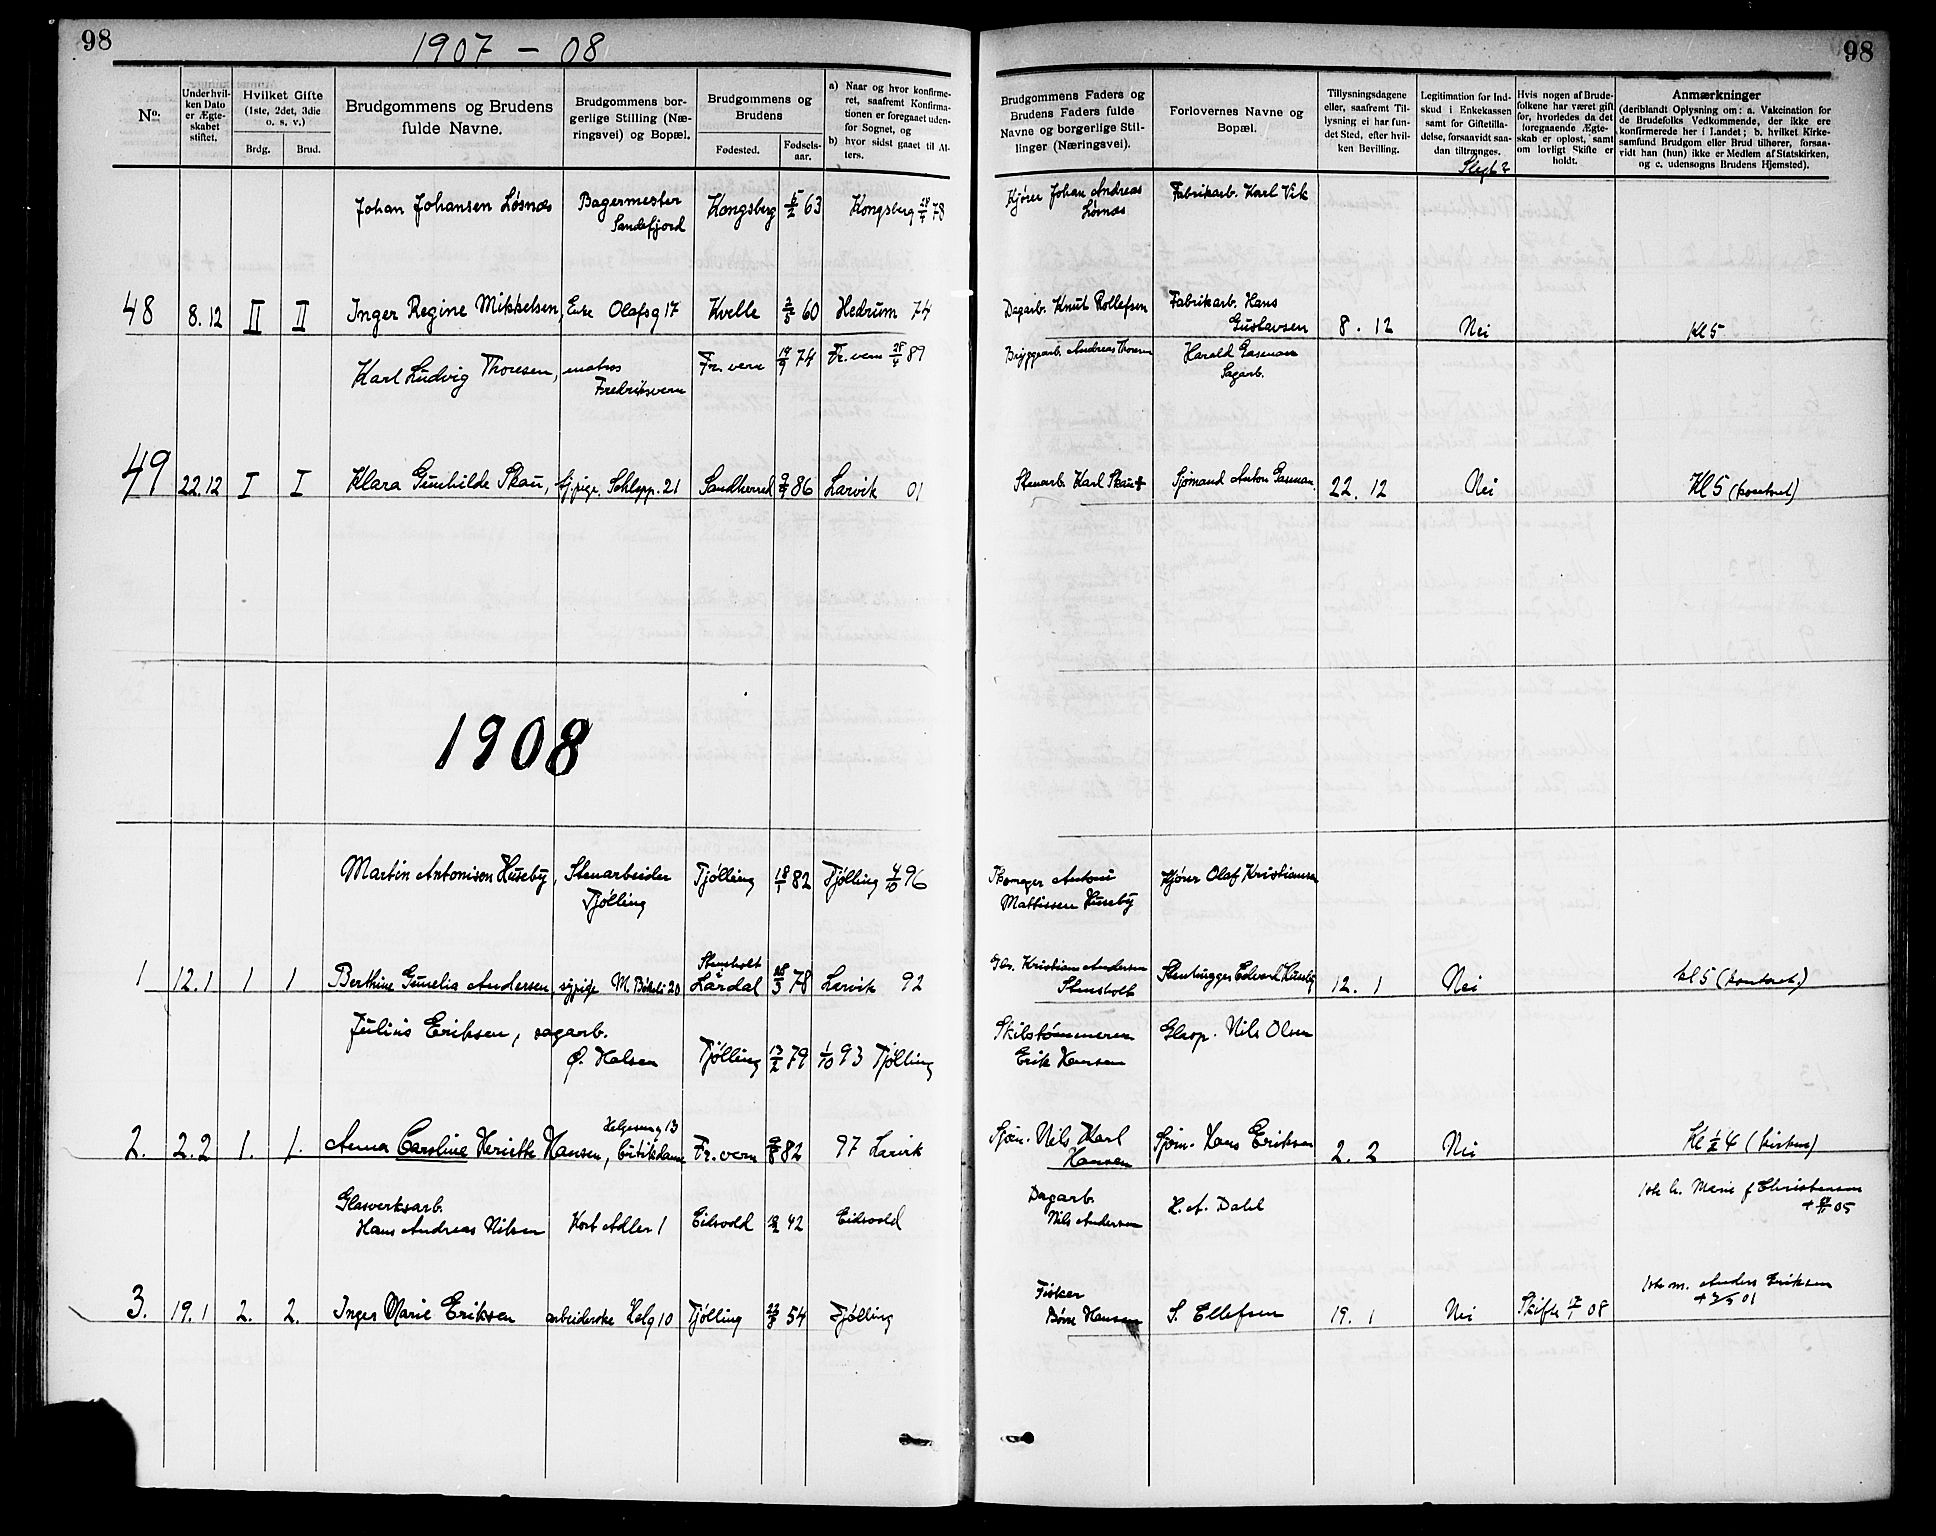 98
1907 - 08
98
No.
Under hvilken Dato er Ægteskabet stiftet.
Hvilket Gifte (1ste, 2det, 3die o. s. v.)
Brdg.
Brud.
Brudgommens og Brudens fulde Navne.
Brudgommens borgerlige Stilling (Næringsvei) og Bopæl.
Brudgommens og Brudens
Fødested.
Fødselsaar.
a) Naar og hvor konfirmeret, saafremt Konfirmationen er foregaaet udenfor Sognet, og
b) hvor sidst gaaet til Alters.
Brudgommens Faders og Brudens Faders fulde Navne og borgerlige Stillinger (Næringsvei).
Forlovernes Navne og Bopæl.
Tillysningsdagene eller, saafremt Tillysning ei har fundet Sted, efter hvilken Bevilling.
Legitimation for Indskud i Enkekassen samt for Giftetilladelse, forsaavidt saadan tiltrænges.
Hvis nogen af Brudefolkene har været gift før, hvorledes da det foregaaende Ægteskab er opløst, samt om lovligt Skifte er holdt.
Anmærkninger
(deriblandt Oplysning om: a. Vakcination for de Brudefolks Vedkommende, der ikke ere konfirmerede her i Landet; b. hvilket Kirkesamfund Brudgom eller Brud tilhører, forsaavidt han (hun) ikke er Medlem af Statskirken, og c. udensogns Brudens Hjemsted).
Johan Johansen Løsnæs Bagermester Kongsberg 63 Kongsberg 78 Kjører Johan Andreas Fabrikarb. Karl Vik
Sandefjord Løsnæs
48 8.12 II II Inger Regine Mikkelsen, Enke Olafsg 17 Kvelle 3/5 60 Hedrum 74 Dagarb. Knut Rollefsen Fabrikarb. Hans
Gustavsen 8. 12 Nei Kl 5
Karl Ludvig Thoresen, matros Fr. vern 74 Fr. vern 28/4 89 Bryggearb. Andreas Thoresen Harald Gasman
Fredriksvern Sagarb.
49 22.12 I I Klara Gunhilde Skau, Sandherred 86 Larvik 01 Stenarb. Karl Skau + Sjømand Anton Gasman. 22. 12 Nei Kl 5 (kontoret)
1908
Martin Antonison Huseby, Stenarbeider Tjølling 18/1 82 Tjølling 4/10 96 Antoni Kjører Olaf Kristiansen
Tjølling Mattissen Huseby
Stensholt
1 12.1 1 1 Berthine Gunelia Andersen, sypige M. Bikeli 20 Lardal 78 Larvik 92 Kristian Andersen Stenhugger Edvard Huseby 12. 1 Nei Kl 5 (kontoret.)
Stensholt
Julius Eriksen, sagarb. Skilstømmeren Glasop. Nils Olsen
Ø. Halsen Tjølling 13/2 79 1/10 93 Tjølling Erik Hansen
Helgesensg 13
2. 2.2 1. 1. Anna Caroline Heriette Hansen, Fr. vern 9/8 82 97 Larvik Sjøm. Nils Karl Sjøm. Hans Eriksen 2. 2 Nei Kl ½ 4 (kirken)
Hansen
Glasverksarb. Dagarb. H. A. Dahl Marie f Christensen
Hans Andreas Nilsen Kort Adler 1 Eidsvold 42 Eidsvold Nils Andersen + 05
3. 19.1 2. 2. Inger Marie Eriksen arbeiderske Helg 10 Tjølling 54 Tjølling Fisker S. Ellefsen 19. 1 Nei Skifte 17/1 08 m. Anders Eriksen
Børre Hansen + 01